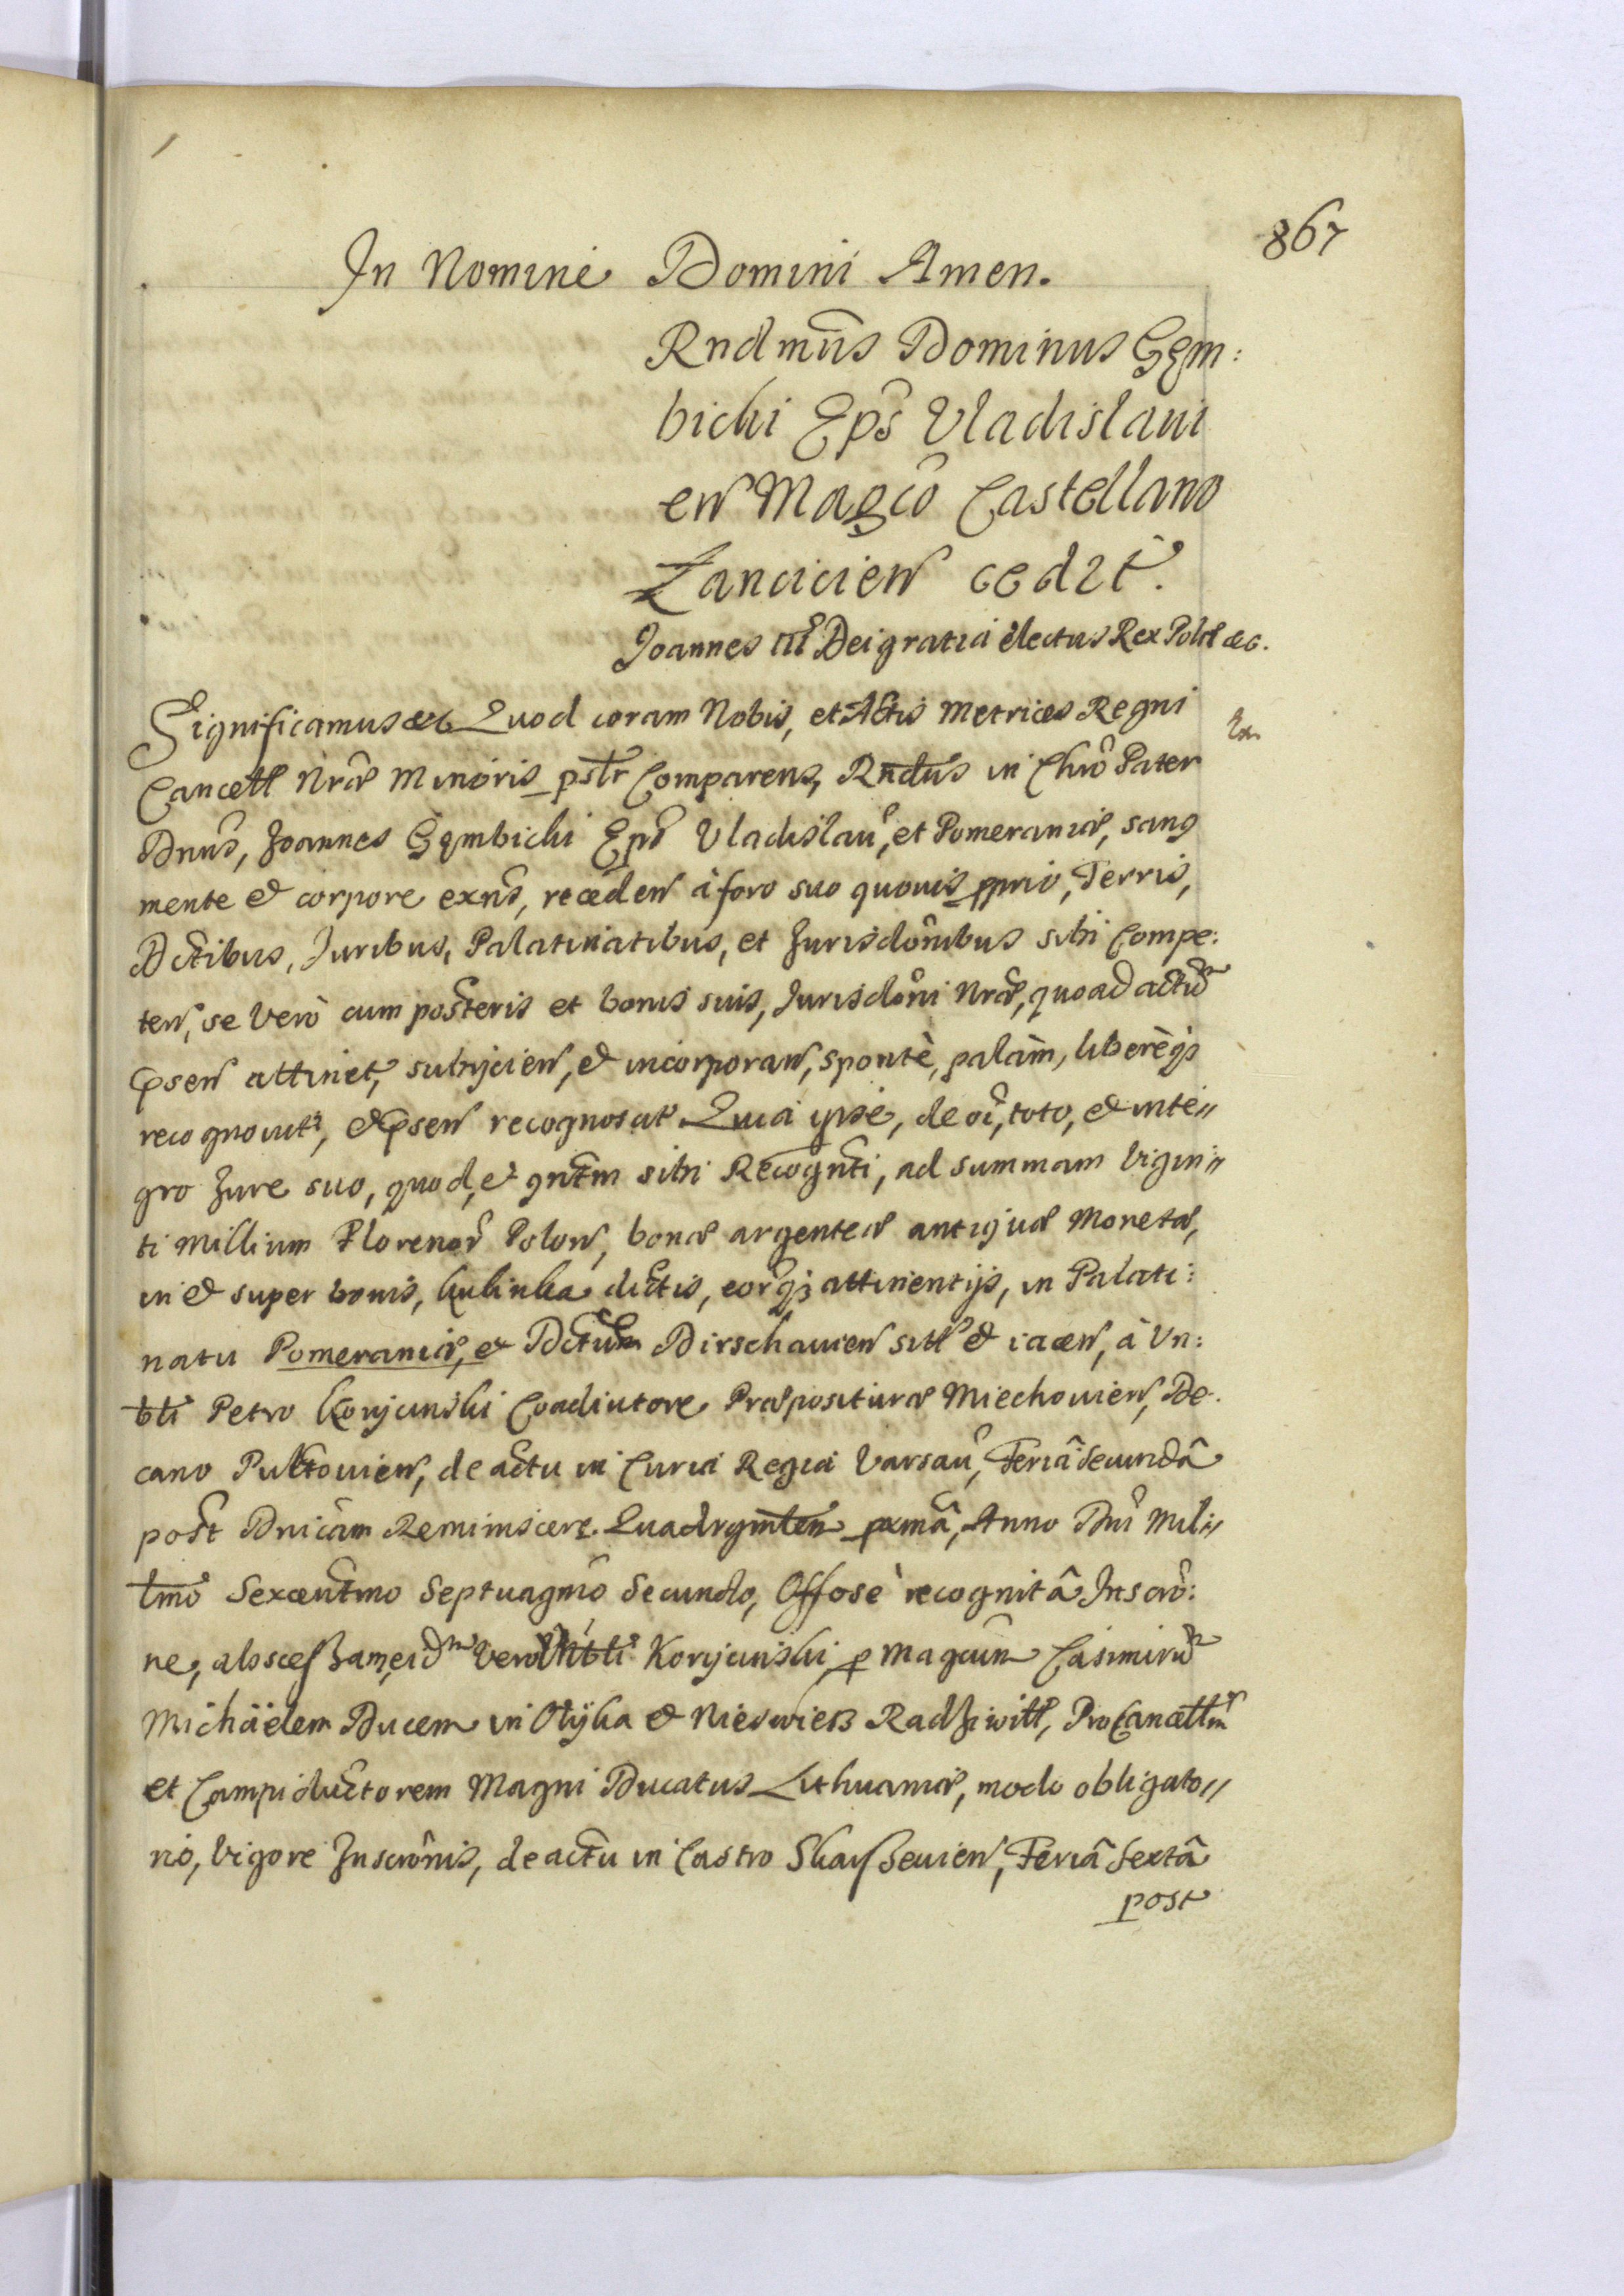 867
In Nomine Domini Amen.
Rndmūs Dominus Gęm:
bicki Epŝ Vladislaui
en̄ Magcô Castellano
Łanciciēn cedit.
Joannes III Dei gratia electus Rex Polæ &c.
Significamus &c. Quod coram Nobis, et Actis Metrices Regni
Cancell Nræ Minoris pslr Comparens, Rndus in Chrô Pater
Dnus, Joannes Gęmbicki Epŝ Vladislaū, et Pomeraniæ, sang
mente & corpore exns, receden̄ à foro suo quouis pprio, Terris,
Dctibus, Juribus, Palatinatibus, et Jurisdônibus sibi Compe:
ten̄, se verò cum posteris et bonis suis, Jurisdôni Nræ, quoad actū
pseñ attinet, subijcien̄, & incorporan̄, spontè, palàm, liberèq;
recognouit, & pseñ recognoscit Quia ipse, de oi, toto, & inte//
gro Jure suo, quod, & qntm sibi Recognti, ad summam vigin//
ti Millium Florenor̄ Polon̄, bonæ argenteæ antiquæ Monetæ,
in & super bonis, Kulinka dictis, eorq; attinentijs, in Palati:
natu Pomeraniæ, & Dctum Dirschauien̄ sitl & iacen̄, à Vn:
bli Petro Koryciński Coadiutore Præposituræ Miechouien̄, De
cano Pultouien̄, de actu in Curia Regia Varsaū, Feriâ Secundâ
post Dnicam Reminiscere. Quadrgmlem pxmâ, Anno Dni Mili//
lmo Sexcentmo Septuagmo Secundo, Offose recognitâ Inscrô:
ne, Vnbli Koryciński, p Magcum Casimirū
Michäelem Ducem in Olÿka & Nieswiez Radziwill, ProCancellm
et Campiductorem Magni Ducatus Lithuaniæ, modo obligato//
rio, vigore Inscrônis, de actu in Castro Skarszeuien̄, Feriâ Sextâ
post